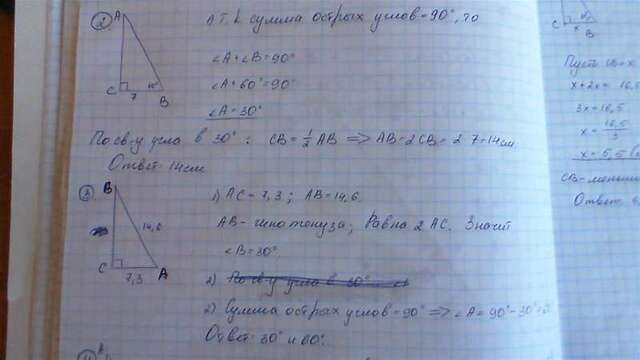 2
A
C
7
60°
B
1) Т.к сумма острых углов = 90°, то
∠A+∠B=90°
∠A+60°=90°
∠A=30°
По св-у угла в 30°: CB=½AB => AB=2CB=2·7=14см
Ответ 14см
3
B
14,6
C
7,3
A
1) AC=7,3; AB=14,6.
AB-гипотенуза; Равна 2AC. Значит
∠B=30°.
2) По св-у угла в 30°
2) Сумма острых углов=90° => ∠A=90°-30°=
Ответ: 30° и 60°.
C
x
B
Пусть CB=x
x+2x=16,5
3x=16,5
x=16,5/3
x=5,5
CB-меньш
Ответ: